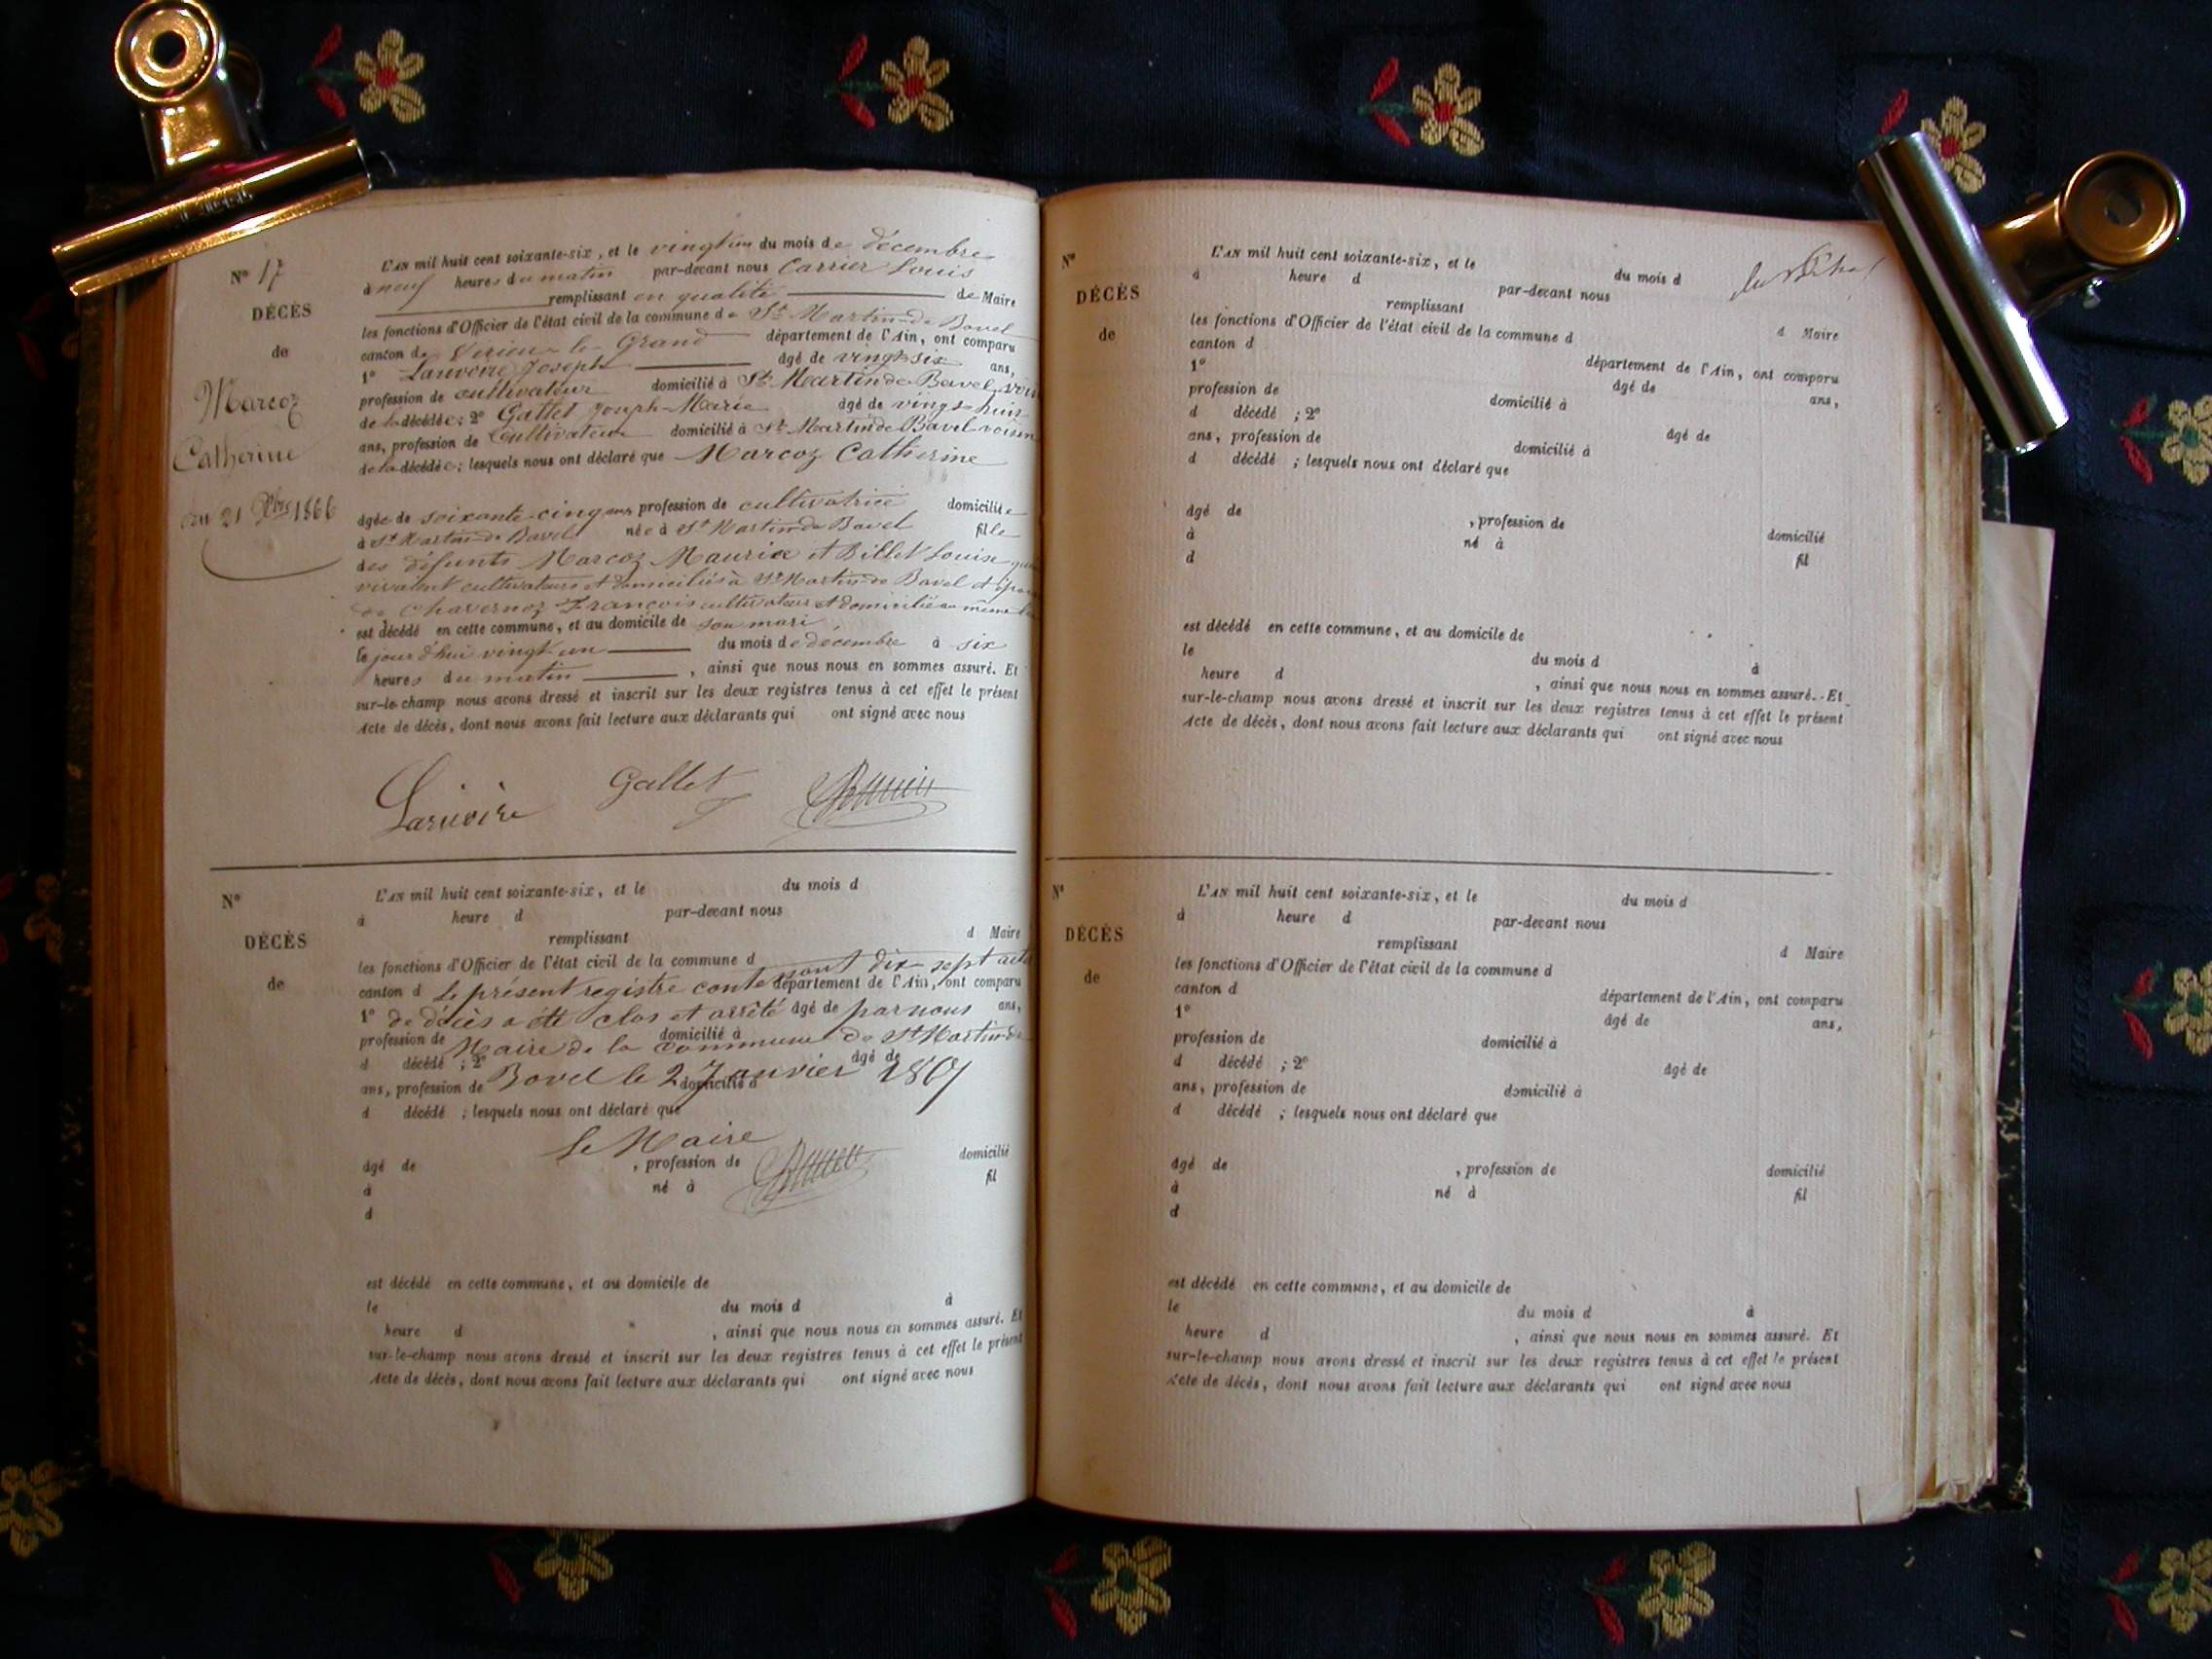 N° 17
DÉCÈS
de
Marcoz
Catherine
du 21 Xbre 1866
L'AN mil huit cent soixante-six, et le vingt un du mois de décembre
à neuf heures du matin par-devant nous Carrier Louis
remplissant en qualité de Maire
les fonctions d'Officier de l'état civil de la commune de St Martin-de Bavel
canton de Virieu-le-Grand département de l'Ain, ont comparu
1° Larivoire Joseph âgé de vingt-six ans,
profession de cultivateur domicilié à St Martin de Bavel, voisin
de la décédée; 2° Gallet Joseph-Marie âgé de vingt-huit
ans, profession de Cultivateur domicilié à St Martin de Bavel voisin
de la décédée; lesquels nous ont déclaré que Marcoz Catherine
âgée de soixante-cinq ans profession de cultivatrice domiciliée
à St Martin-de Bavel née à St Martin-de Bavel fille
des défunts Marcoz Maurice et Billet Louise qui
vivaient cultivateurs et domiciliés à St Martin-de Bavel et
de Chavernoz François cultivateur et domicilié au même
est décédé en cette commune, et au domicile de son mari
le jour d'hui vingt un du mois de décembre à six
heures du matin, ainsi que nous nous en sommes assuré. Et
sur-le-champ nous avons dressé et inscrit sur les deux registres tenus à cet effet le présent
Acte de décès, dont nous avons fait lecture aux déclarants qui ont signé avec nous
Larivoire Gallet
N°
DÉCÈS
de
L'AN mil huit cent soixante-six, et le du mois d
à heure d par-devant nous
remplissant d Maire
les fonctions d'Officier de l'état civil de la commune d
canton d département de l'Ain, ont comparu
1° âgé de ans,
profession de domicilié à
d décédé ; 2° âgé de
ans, profession de domicilié à
d décédé ; lesquels nous ont déclaré que
Le présent registre contenant dix sept actes
de décès a été clos et arrêté par nous
Maire de la commune de St Martin-de
Bavel le 2 Janvier 1867
Le Maire
âgé de , profession de domicilié
à né à fil
d
est décédé en cette commune, et au domicile de
le du mois d à
heure d , ainsi que nous nous en sommes assuré. Et
sur-le-champ nous avons dressé et inscrit sur les deux registres tenus à cet effet le présent
Acte de décès, dont nous avons fait lecture aux déclarants qui ont signé avec nous
N°
DÉCÈS
de
L'AN mil huit cent soixante-six, et le du mois d
à heure d par-devant nous
remplissant d Maire
les fonctions d'Officier de l'état civil de la commune d
canton d département de l'Ain, ont comparu
1° âgé de ans,
profession de domicilié à
d décédé ; 2° âgé de
ans, profession de domicilié à
d décédé ; lesquels nous ont déclaré que
âgé de , profession de domicilié
à né à fil
d
est décédé en cette commune, et au domicile de
le du mois d à
heure d , ainsi que nous nous en sommes assuré. Et
sur-le-champ nous avons dressé et inscrit sur les deux registres tenus à cet effet le présent
Acte de décès, dont nous avons fait lecture aux déclarants qui ont signé avec nous
N°
DÉCÈS
de
L'AN mil huit cent soixante-six, et le du mois d
à heure d par-devant nous
remplissant d Maire
les fonctions d'Officier de l'état civil de la commune d
canton d département de l'Ain, ont comparu
1° âgé de ans,
profession de domicilié à
d décédé ; 2° âgé de
ans, profession de domicilié à
d décédé ; lesquels nous ont déclaré que
âgé de , profession de domicilié
à né à fil
d
est décédé en cette commune, et au domicile de
le du mois d à
heure d , ainsi que nous nous en sommes assuré. Et
sur-le-champ nous avons dressé et inscrit sur les deux registres tenus à cet effet le présent
Acte de décès, dont nous avons fait lecture aux déclarants qui ont signé avec nous